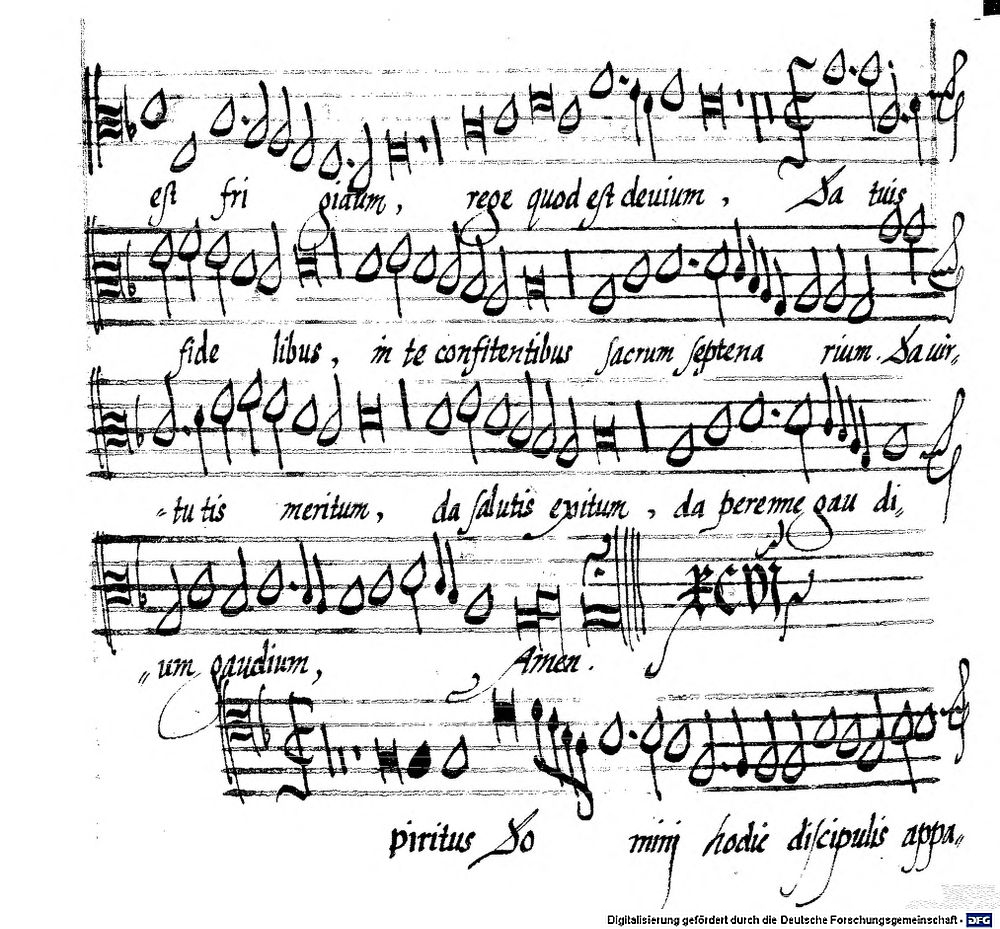 est fri gidum, rege quod est deuium, Da tuis
fide libus, in te confitentibus sacrum septena rium. Da uir„
„tu tis meritum, da salutis exitum, da perenne gau di„
„um gaudium, Amen.
piritus Do minj hodie discipulis appa„
Digitalisierung gefördert durch die Deutsche Forschungsgemeinschaft - DFG